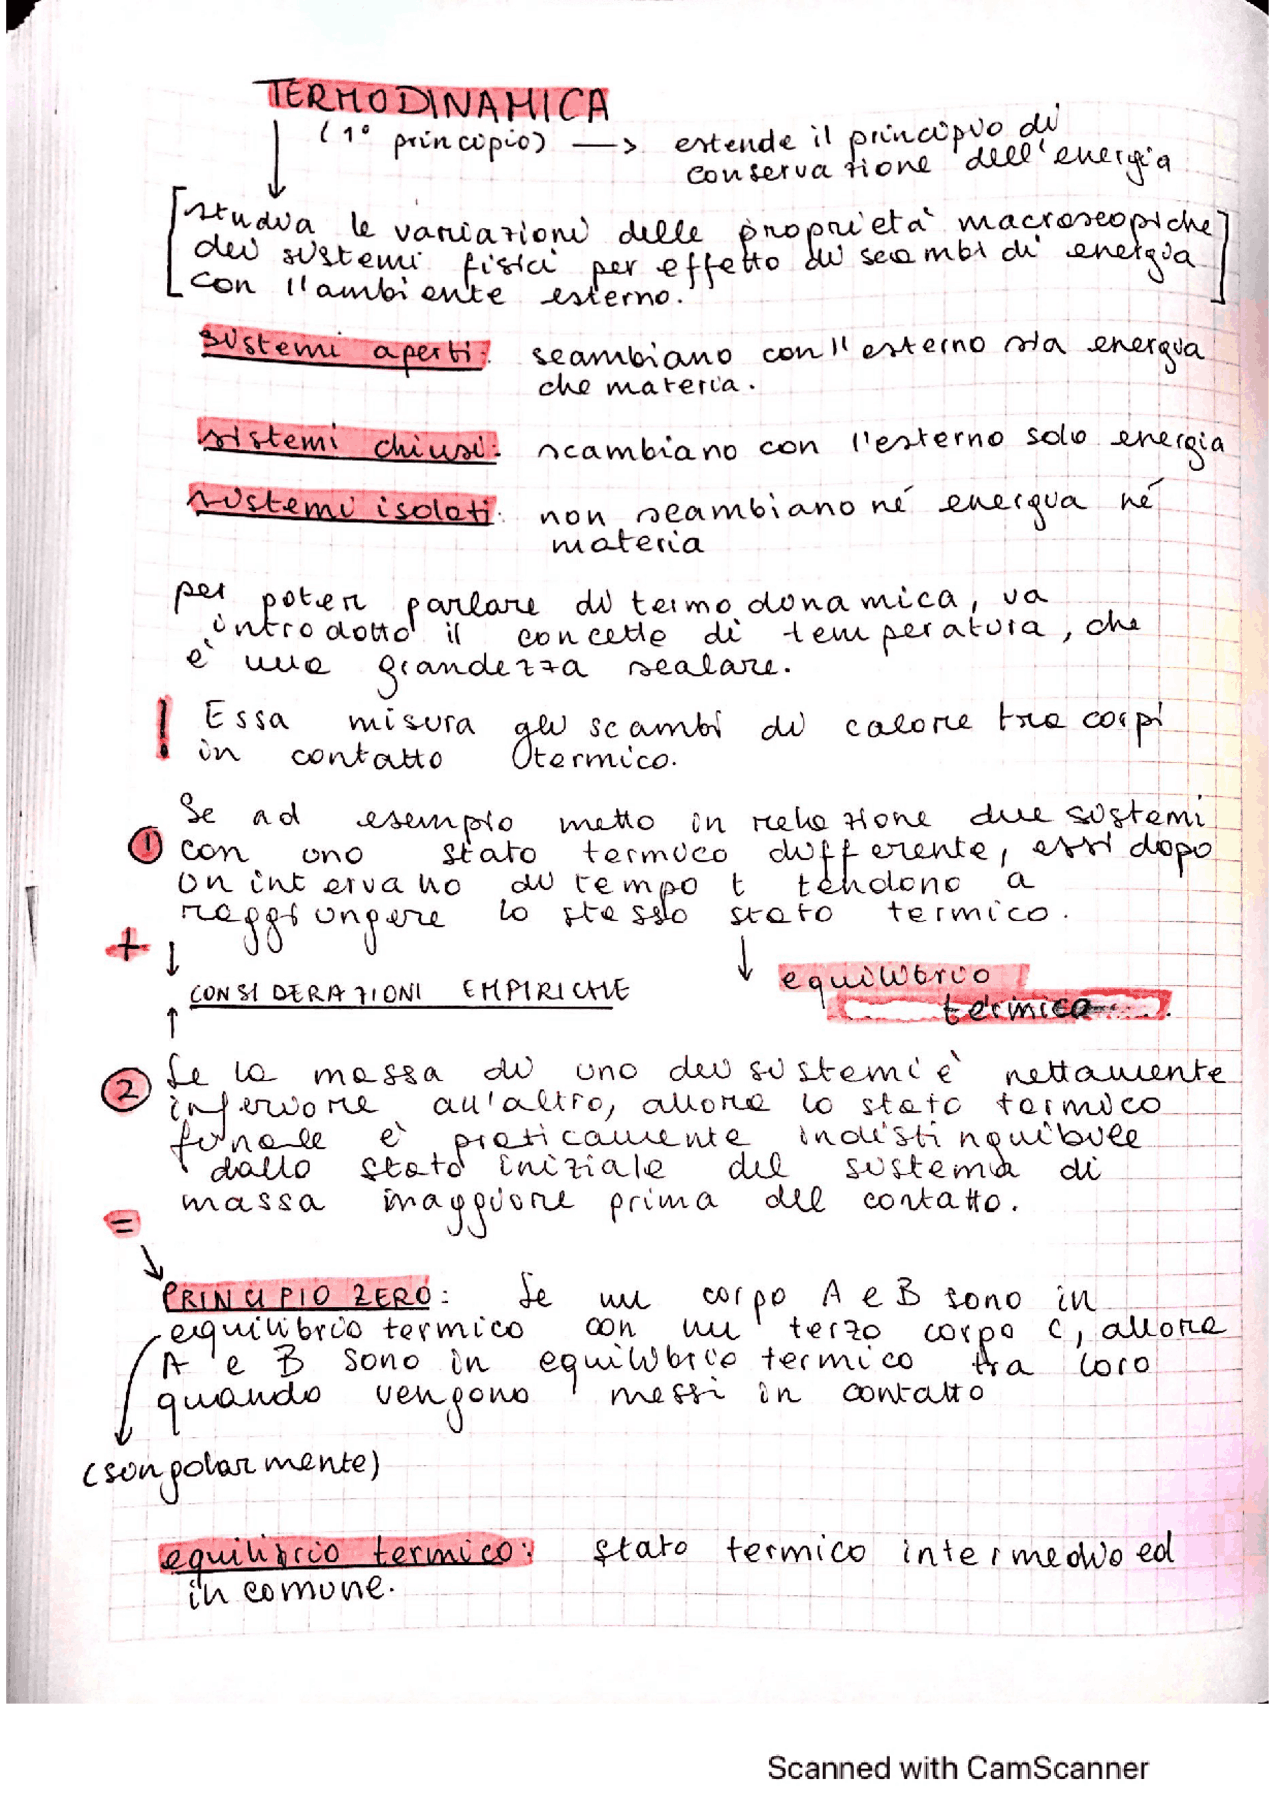 TERMODINAMICA
(1° principio) → estende il principio di
conservazione dell'energia
[studia le variazioni delle proprietà macroscopiche]
dei sistemi fisici per effetto di scambi di energia
con l'ambiente esterno.
sistemi aperti: scambiano con l'esterno sia energia
che materia.
sistemi chiusi: scambiano con l'esterno solo energia
sistemi isolati: non scambiano né energia né
materia
per poter parlare di termodinamica, va
introdotto il concetto di temperatura, che
è una grandezza scalare.
! Essa misura gli scambi di calore tra corpi
in contatto termico.
Se ad esempio metto in relazione due sistemi
① con uno stato termico differente, essi dopo
un intervallo di tempo t tendono a
raggiungere lo stesso stato termico.
+ ↓
↓ equilibrio
termico
CONSIDERAZIONI EMPIRICHE
↑
② Se la massa di uno dei sistemi è nettamente
inferiore all'altro, allora lo stato termico
finale è praticamente indistinguibile
dallo stato iniziale del sistema di
massa maggiore prima del contatto.
=
PRINCIPIO ZERO: Se un corpo A e B sono in
equilibrio termico con un terzo corpo C, allora
A e B sono in equilibrio termico tra loro
quando vengono messi in contatto
(singolarmente)
equilibrio termico: stato termico intermedio ed
in comune.
Scanned with CamScanner